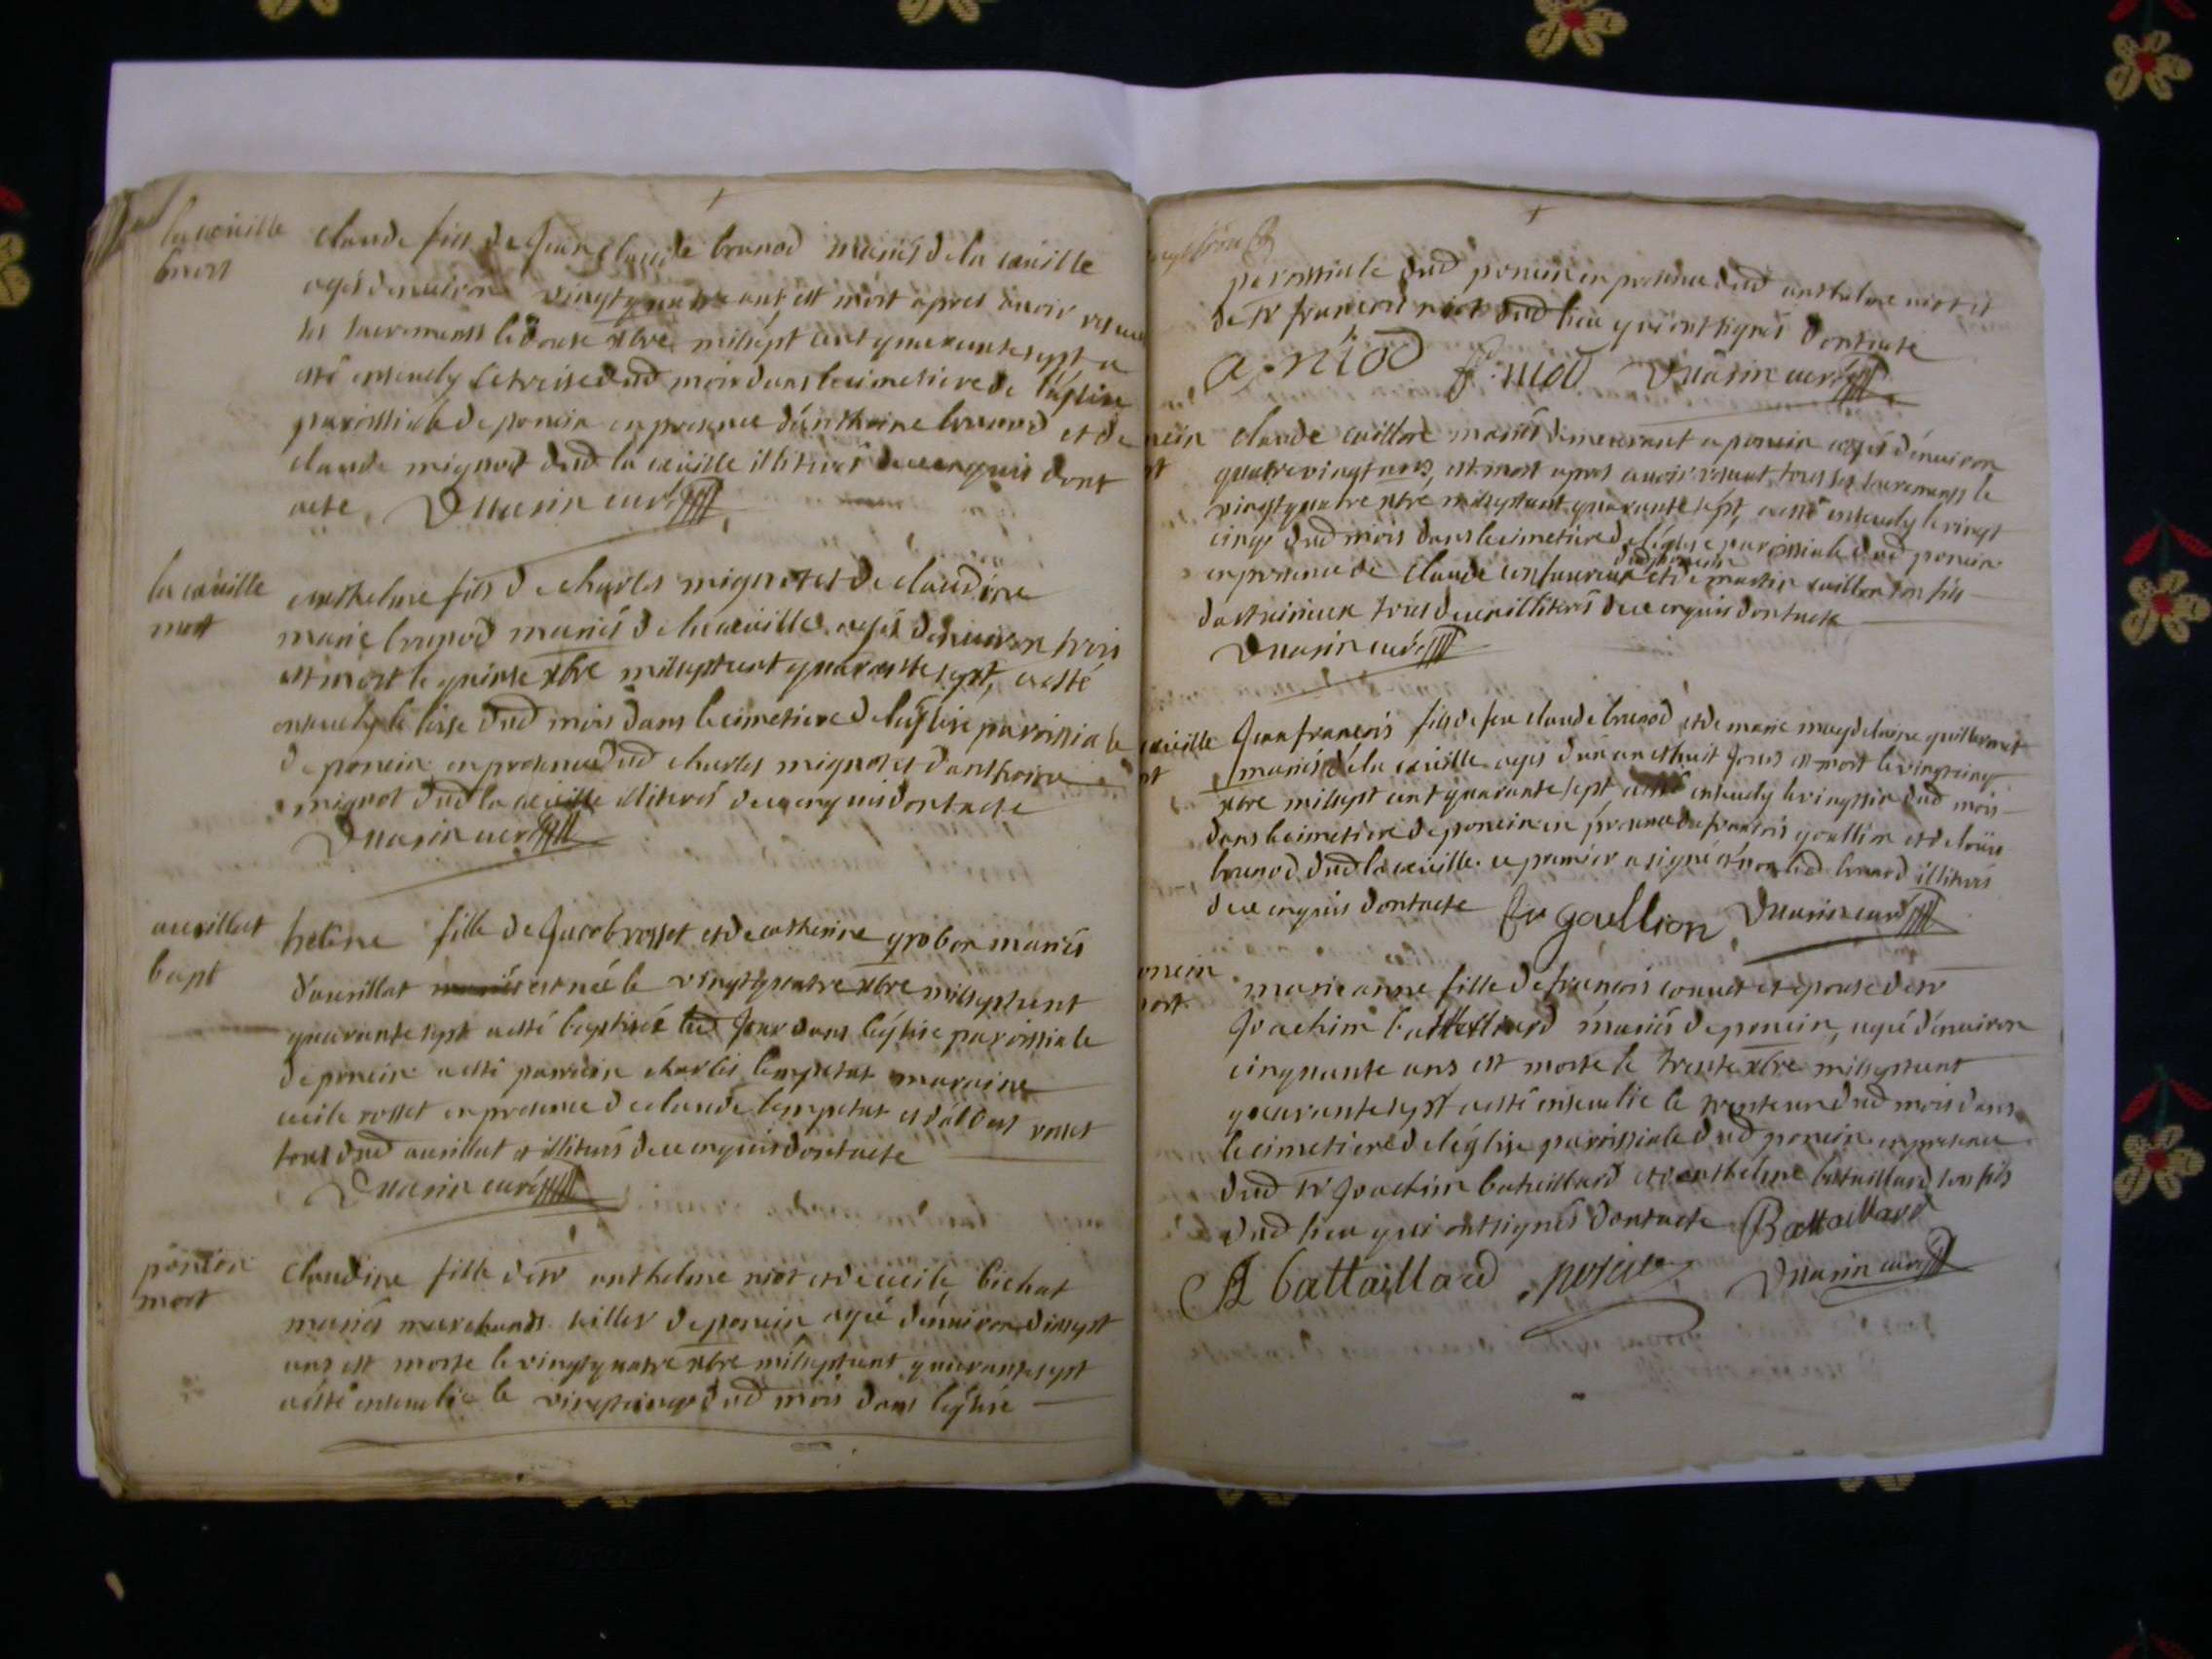 la cueille
mort
claude fils de Jean claude brunod mariés de la cueille
agés denuiron vingtquatre ans, est mort apres auoir reçeu
les sacrements le douse xbre milsept cent quarantesept a
esté enseuely le treise dud mois dans le cimetiere de léglise
paroissiale de poncin en presence dánthoine brunod et de
claude mignot dud la cueille illiterés de ce enquis dont
acte Duuasin curé
la cueille
mort
anthelme fils de charles mignot et de claudine
marie brunod mariés de la cueille agés denuiron trois
est mort le quinse xbre milseptcent quarantesept, a esté
enseuely le sese dud mois dans le cimetiere de léglise paroissiale
de poncin en presence dud charles mignot et danthoine
mignot dud la cueille illiterés de ce enquis dont acte
curé
auuillat
bapt
heleine fille de Jacob rosset et de catherine grobon mariés
dauuillat est née le vingtquatre xbre milseptcent
quarantesept a esté baptisée led Jour dans léglise paroissiale
de poncin a esté parrein charles tempetat maraine
cecile rosset en presence de claude tempetat et rosset
tous dud auuillat illiterés de ce enquis dont acte
curé
poncin
mort
claudine fille de sr anthelme niot et de cecile bichat
mariés marchands de poncin agée dénuiron dixsept
ans est morte le vingtquatre xbre milseptcent quarantesept
a esté enseuelie le vingtcinq dud mois dans léglise
paroissiale dud poncin en presence dud anthelme niot et
de sr francois niot dud lieu qui ont signés dont acte
A. niod f. niod curé
ncin
rt
claude cuillore mariés demeurant a poncin agés dénuiron
quatre vingt ans, est mort apres auoir reseut tous les sacrements le
vingtquatre xbre milseptcent quarantesept, a esté enseuely le vingt
cinq dud mois dans le cimetiere de léglise paroissiale dud poncin
dud poncin
en presence de claude et de martin cuillore son fils
tous deux illiterés de ce enquis dont acte
curé
cueille
rt
Jean francois fils de feu claude brunod et de marie magdeleine guillermet
mariés de la cueille agés dun an et huit Jours est mort le vingtcinq
xbre milsept cent quarantesept, a esté enseuely le vingtsix dud mois
dans le cimetiere de poncin en presence de francois goullion et de louis
brunod dud la cueille ce premier a signé et non led brunod illiterés
de ce enquis dont acte goullion curé
oncin
ort
marie anne fille de francois conuert et epouse de sr
Joachim battaillard mariés de poncin, agée dénuiron
cinquante ans est morte le trente xbre milseptcent
quarantesept a esté enseuelie le trente un dud mois dans
le cimetiere de léglise paroissiale dud poncin en presence
dud sr Joachim bataillard et danthelme bataillard son fils
dud lieu qui ont signés dont acte Battaillard
A battaillard curé